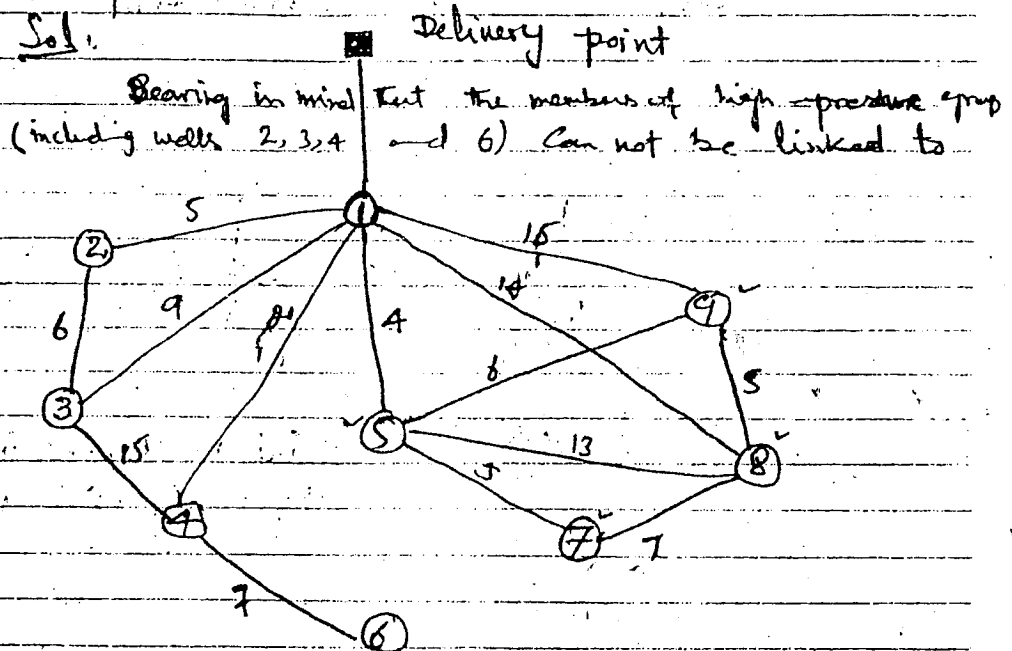 Sol.
Delivery point
Bearing in mind that the members of high-pressure group
(including wells 2, 3, 4 and 6) Can not be linked to
1
5
2
15
14
9
9
6
4
6
5
3
5
13
8
15
5
4
7
7
7
6